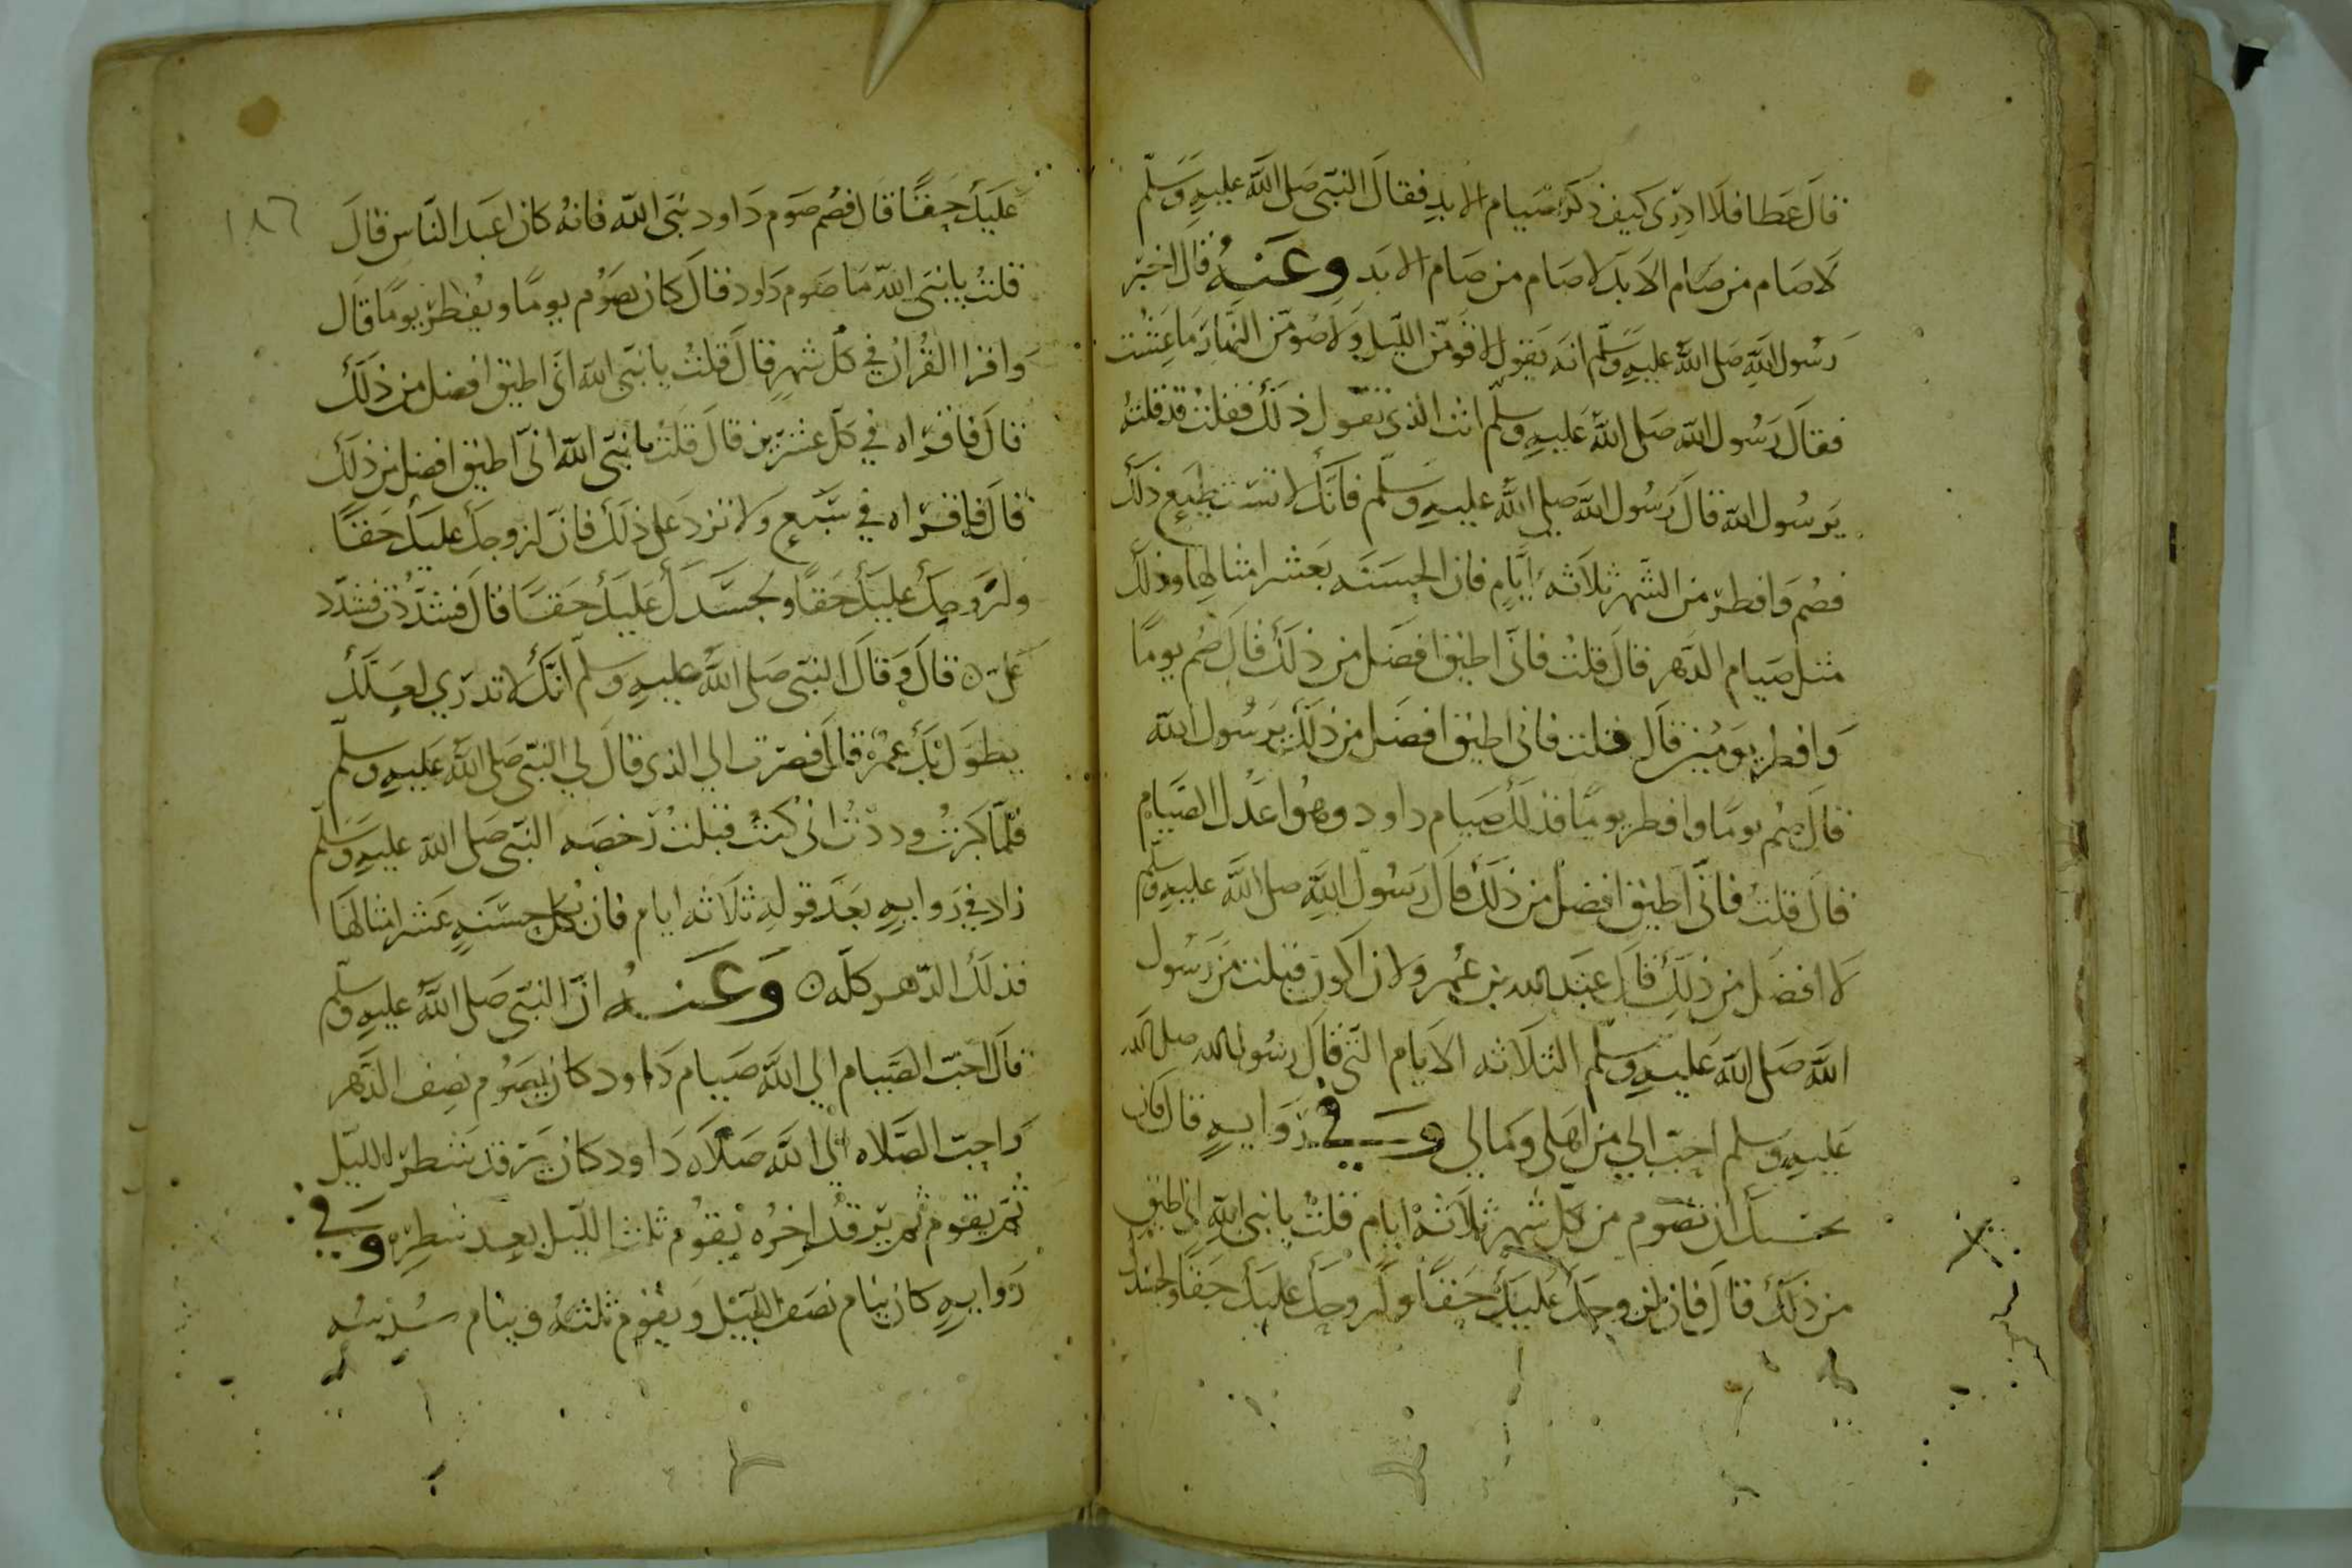 قال عطا فلا ادرى كيف ذكر صيام الابد فقال النبى صلى الله عليه وسلم
لا صام من صام الابد لا صام من صام الابد وعنه قال اخبر
رسول الله صلى الله عليه وسلم انه يقول لاقومن الليل ولاصومن النهار ما عشت
فقال رسول الله صلى الله عليه وسلم انت الذى تقول ذلك فقلت قد قلته
يرسول الله قال رسول الله صلى الله عليه وسلم فانك لا تستطيع ذلك
فصم وافطر من الشهر ثلاثه ايام فان الحسنه بعشر امثالها وذلك
مثل صيام الدهر قال قلت فانى اطيق افضل من ذلك قال صم يوما
وافطر يومين قال قلت فانى اطيق افضل من ذلك يرسول الله
قال صم يوما وافطر يوما فذلك صيام داود وهو اعدل الصيام
قال قلت فانى اطيق افضل من ذلك قال رسول الله صلى الله عليه وسلم
لا افضل من ذلك قال عبد الله بن عمر ولان اكون قبلت من رسول
الله صلى الله عليه وسلم الثلاثه الايام التى قال رسول الله صلى الله
عليه وسلم احب الي من اهلى ومالي وفي رواية قال فان
بحسبك ان تصوم من كل شهر ثلاثة ايام فقلت يا نبى الله انى اطيق
من ذلك قال فان لزوجك عليك حقا ولزوجك عليك حقا ولجسدك
عليك حقا قال فصم صوم داود نبى الله فانه كان اعبد الناس قال
١٨٦
قلت يا نبى الله ما صوم داود قال كان يصوم يوما ويفطر يوما قال
واقرا القران في كل شهر قال قلت يا نبى الله انى اطيق افضل من ذلك
قال فاقراه في كل عشرين قال قلت يا نبى الله انى اطيق افضل من ذلك
قال فاقراه في سبع ولا تزد على ذلك فان لزوجك عليك حقا
ولزوجك عليك حقا ولجسدك عليك حقا قال فشددت فشدد
على ه قال وقال النبى صلى الله عليه وسلم انك لا تدري لعلك
يطول بك عمر قال فصرت الي الذى قال لي النبى صلى الله عليه وسلم
فلما كبرت وددت انى كنت قبلت رخصه النبى صلى الله عليه وسلم
زاد في رواية بعد قوله ثلاثه ايام فان بكل حسنة عشر امثالها
فذلك الدهر كله ه وعنه ان النبى صلى الله عليه وسلم
قال احب الصيام الي الله صيام داود كان يصوم نصف الدهر
واحب الصلاه الي الله صلاه داود كان يرقد شطر الليل
ثم يقوم ثم يرقد اخره يقوم ثلث الليل بعد شطره وفي
رواية كان ينام نصف الليل ويقوم ثلثه وينام سدسه